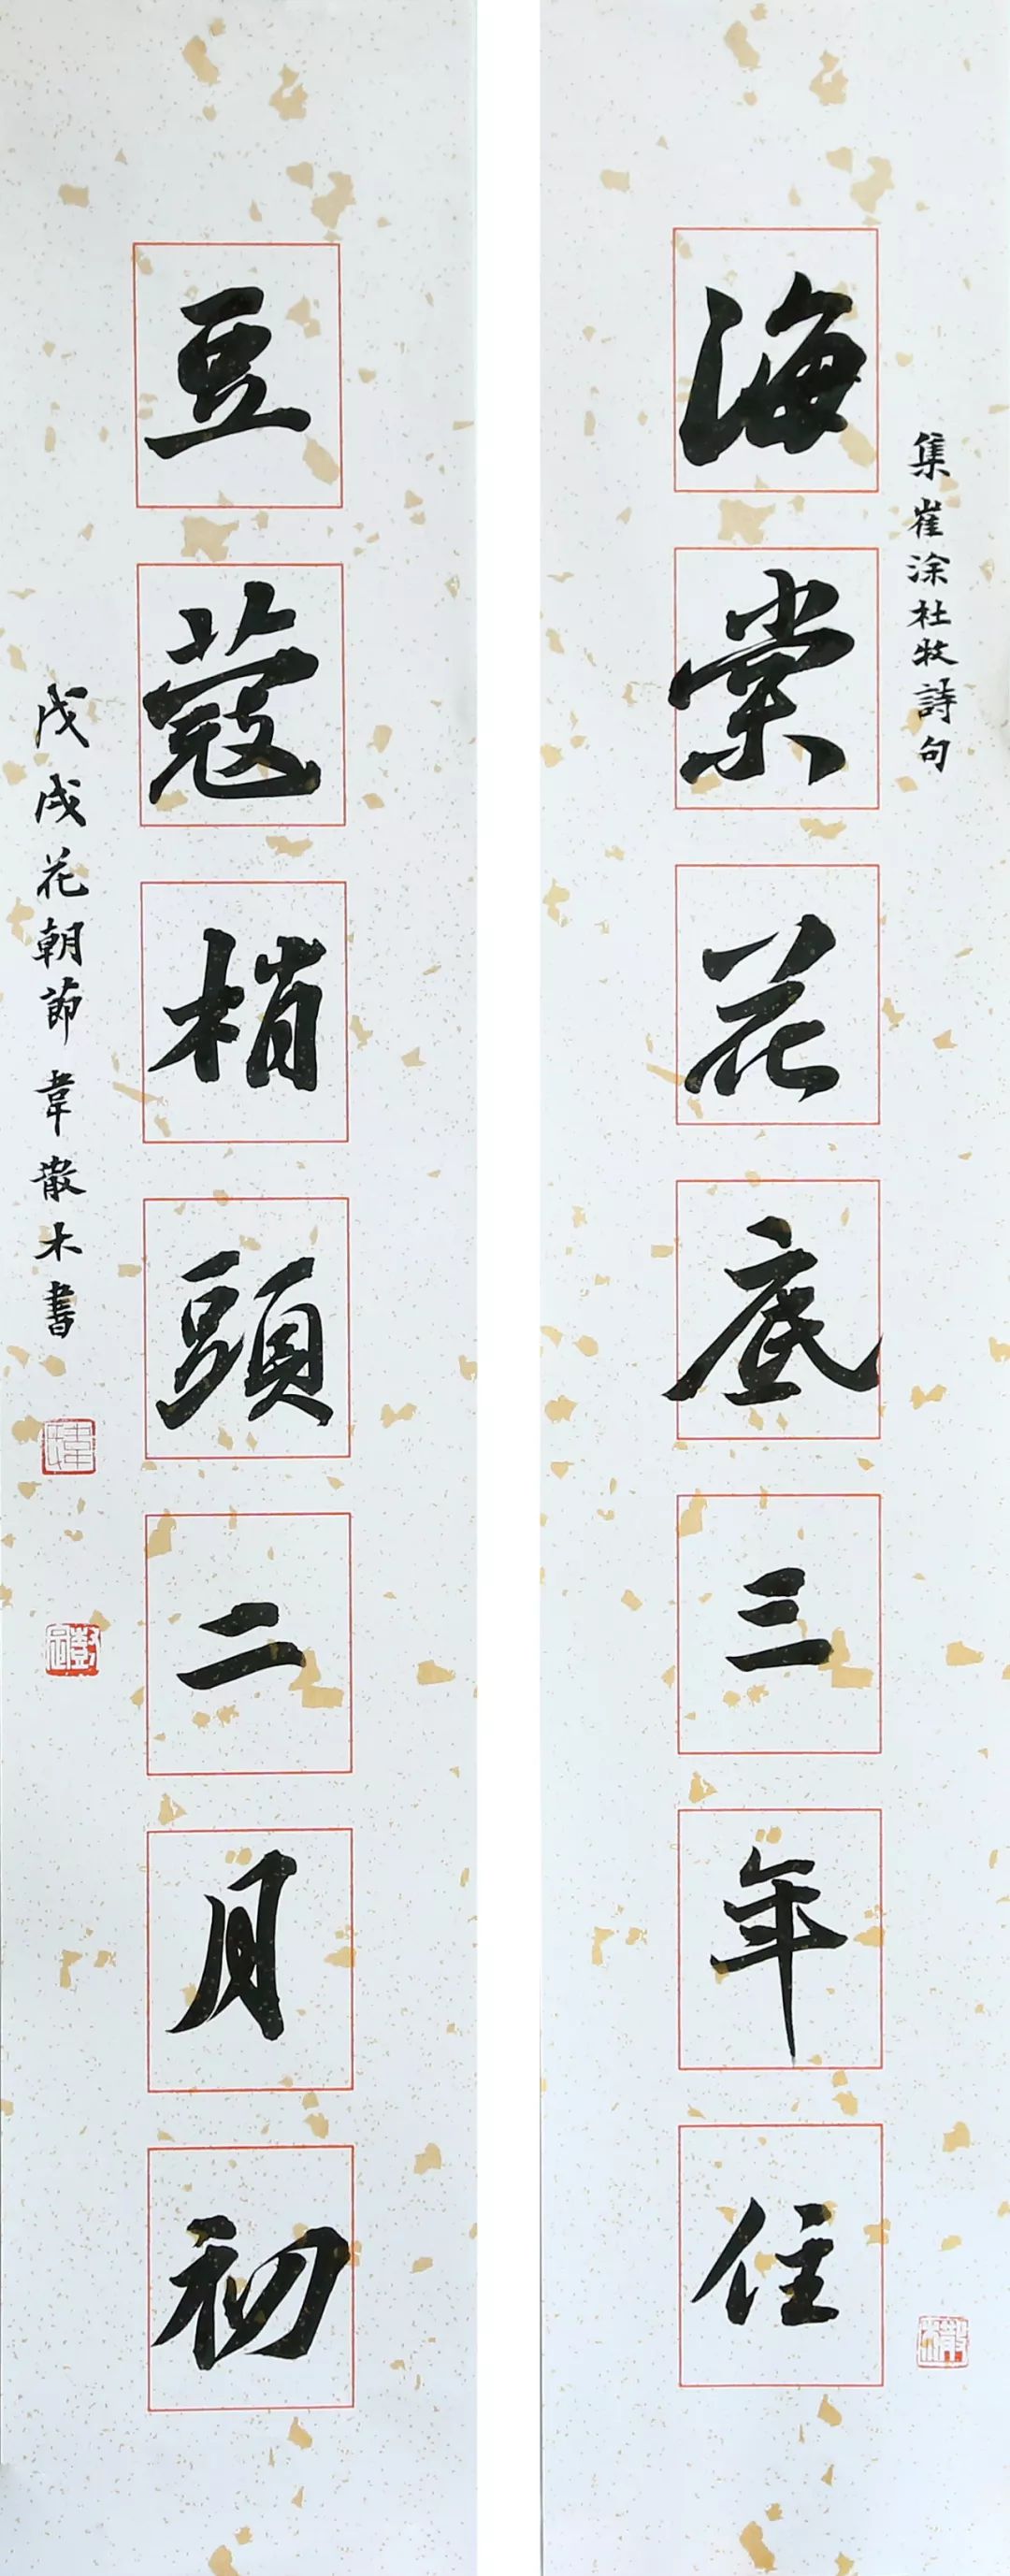 集崔涂杜牧詩句
海棠花底三年住
豆蔻梢頭二月初
戊戌花朝節韋散木書